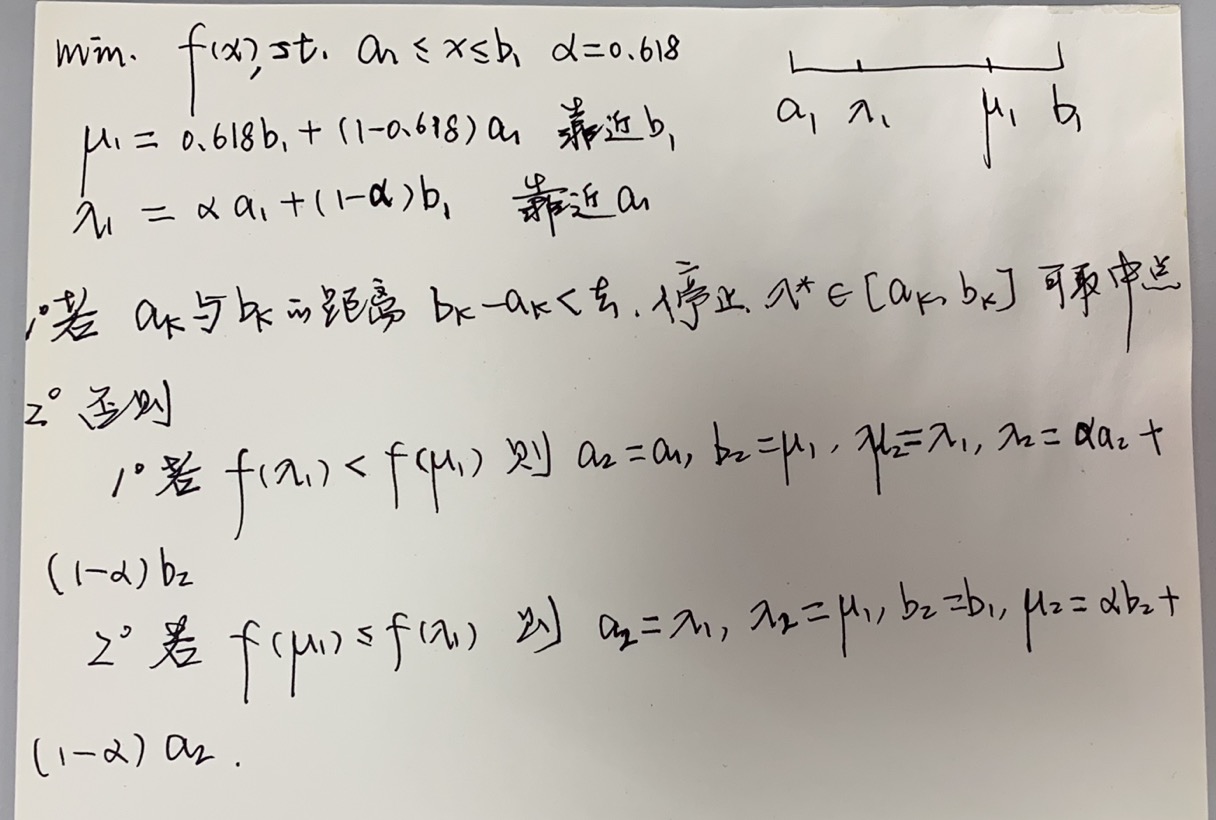 min. f(x), st. a₁ ≤ x ≤ b₁ α=0.618
a₁ λ₁ μ₁ b₁
μ₁ = 0.618b₁ + (1-0.618) a₁ 靠近b₁
λ₁ = α a₁ + (1-α) b₁ 靠近a₁
1° 若 aₖ与bₖ的距离 bₖ-aₖ< 停止, λ* ∈ [aₖ, bₖ] 可取中点
2° 否则
1° 若 f(λ₁) < f(μ₁) 则 a₂=a₁, b₂=μ₁, μ₂=λ₁, λ₂= αa₂ +
(1-α) b₂
2° 若 f(μ₁) ≤ f(λ₁) 则 a₂=λ₁, λ₂=μ₁, b₂=b₁, μ₂= αb₂+
(1-α) a₂.